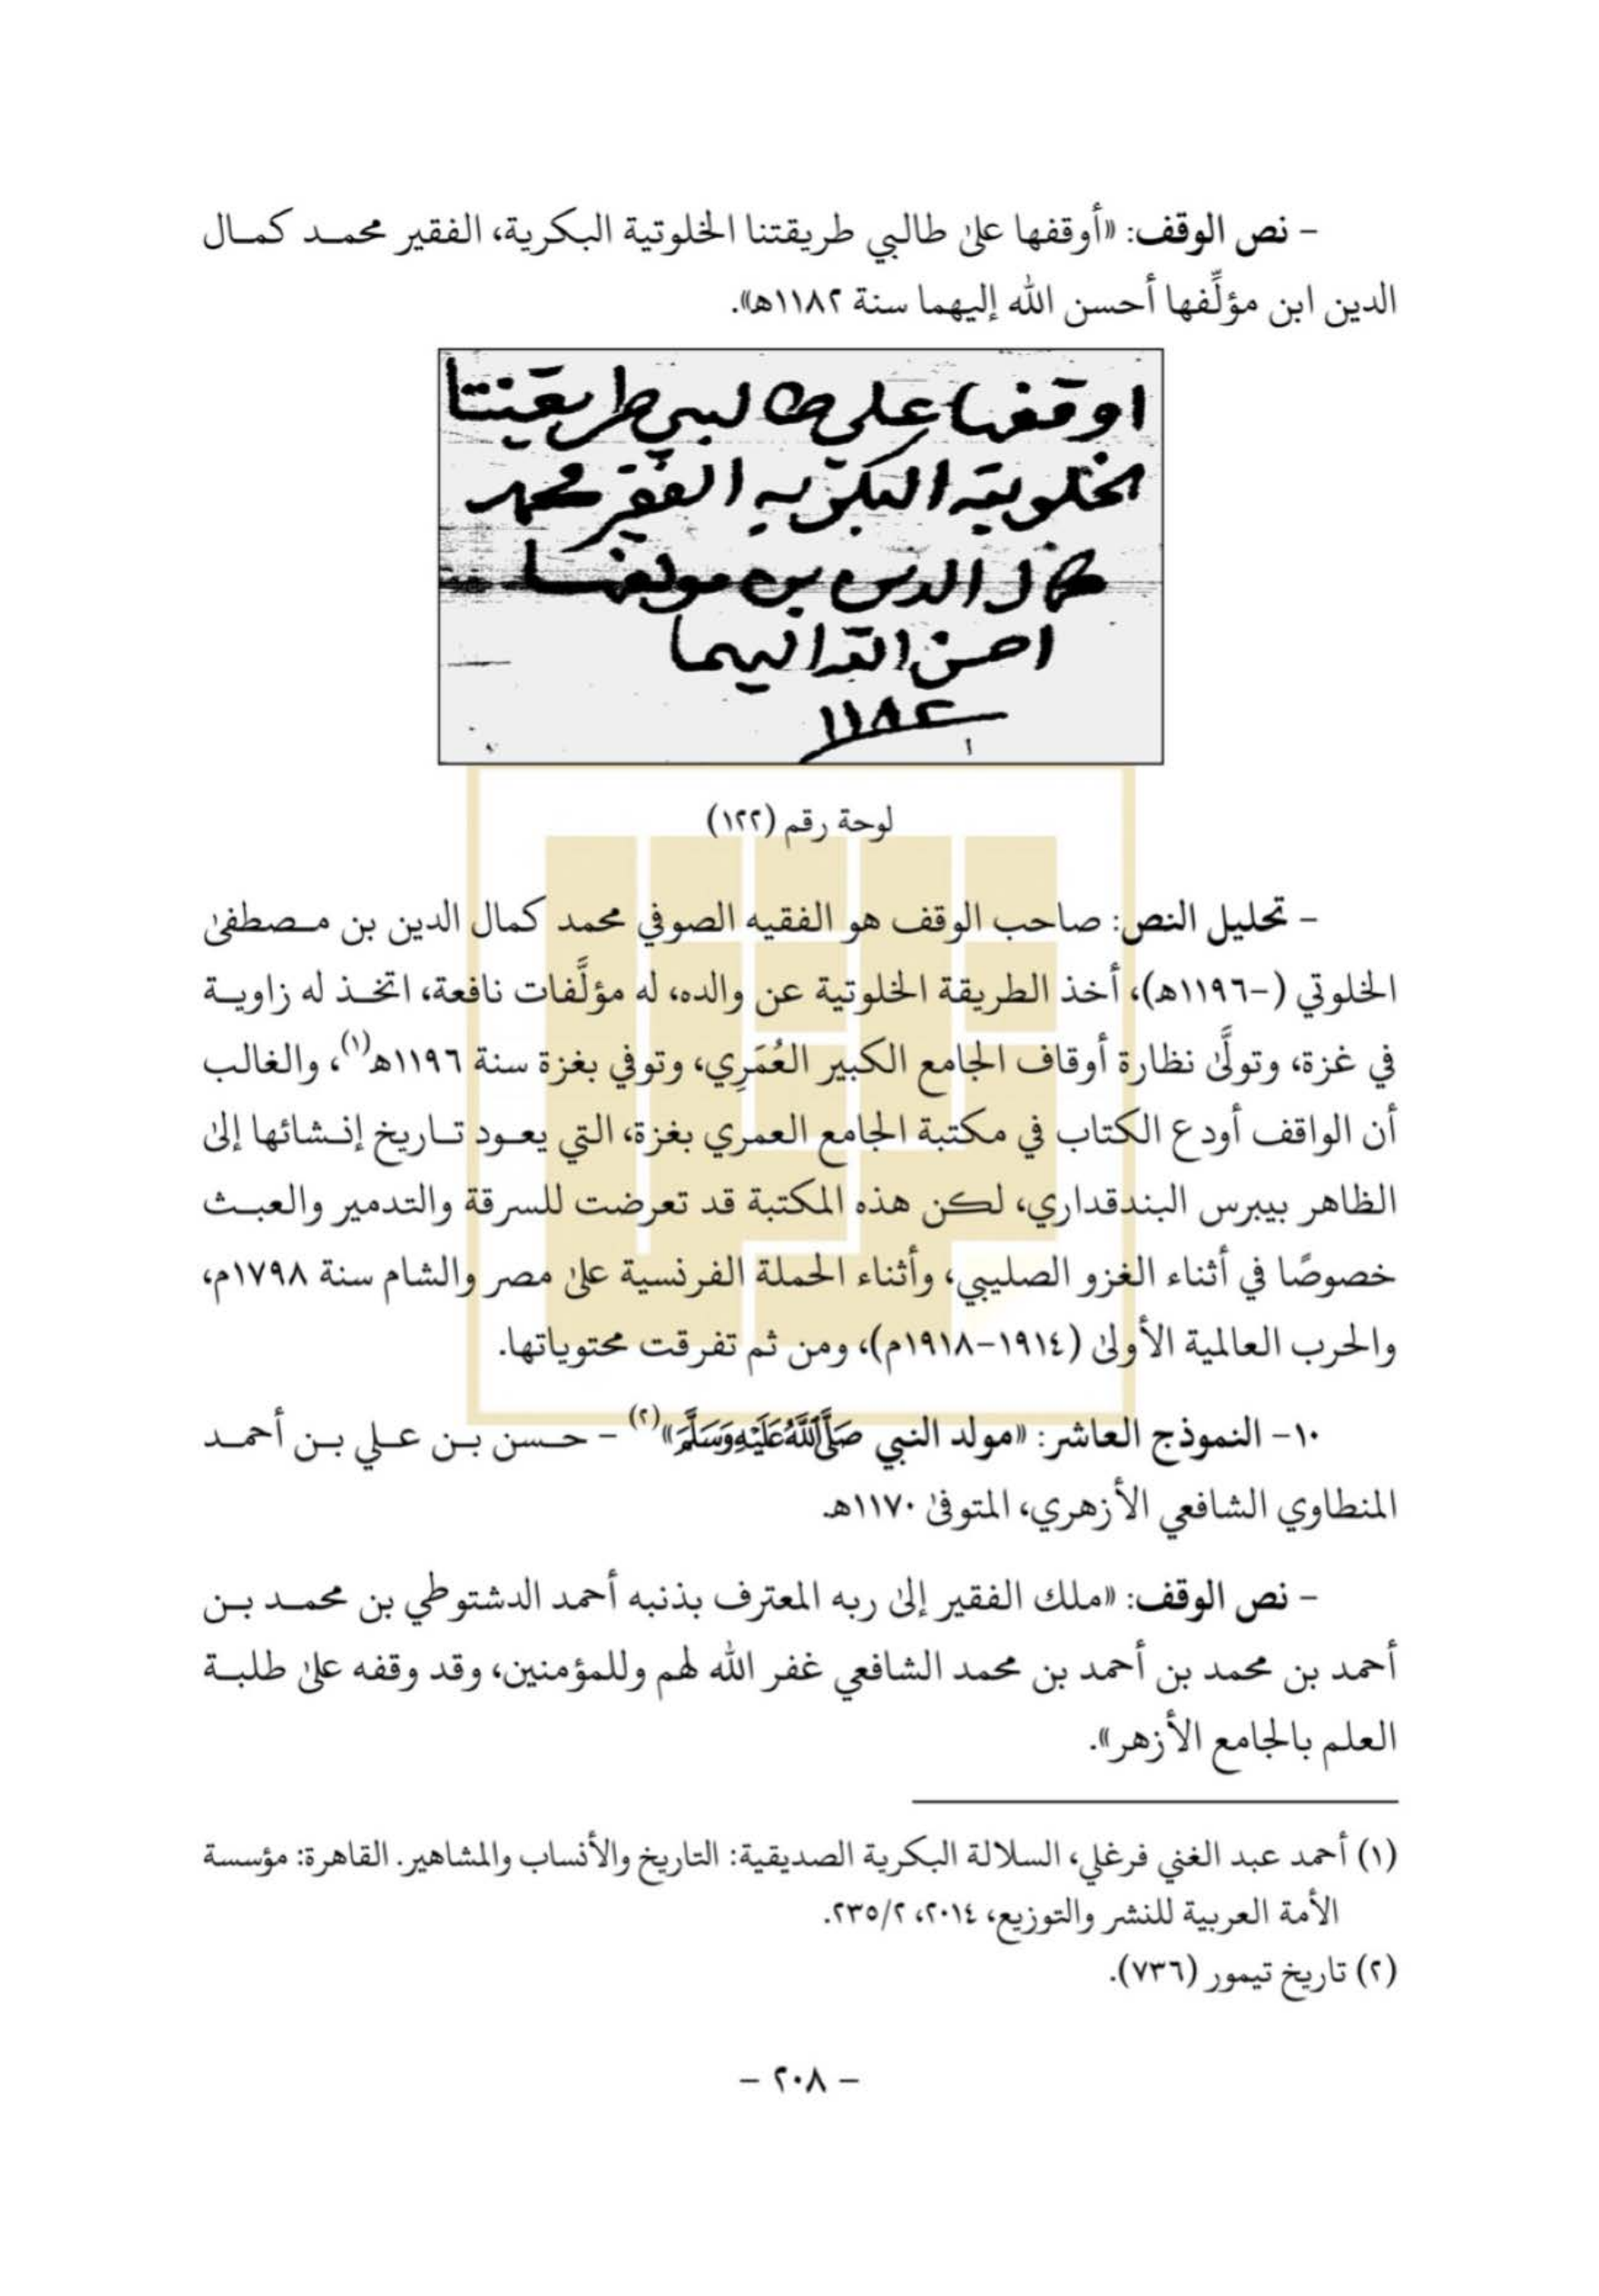 - نص الوقف: «أوقفها على طالبي طريقتنا الخلوتية البكرية، الفقير محمد كمال
الدين ابن مؤلِّفها أحسن الله إليهما سنة ١١٨٢هـ».
اوقفها علي طالبي طريقتنا
الخلوتية البكرية الفقير محمد
كمال الدين بن مولفها
احسن الله اليهما
١١٨٢
لوحة رقم (١٢٢)
- تحليل النص: صاحب الوقف هو الفقيه الصوفي محمد كمال الدين بن مصطفى
الخلوتي (-١١٩٦هـ)، أخذ الطريقة الخلوتية عن والده، له مؤلَّفات نافعة، اتخذ له زاوية
في غزة، وتولَّى نظارة أوقاف الجامع الكبير العُمَرِي، وتوفي بغزة سنة ١١٩٦هـ(١)، والغالب
أن الواقف أودع الكتاب في مكتبة الجامع العمري بغزة، التي يعود تاريخ إنشائها إلى
الظاهر بيبرس البندقداري، لكن هذه المكتبة قد تعرضت للسرقة والتدمير والعبث
خصوصًا في أثناء الغزو الصليبي، وأثناء الحملة الفرنسية على مصر والشام سنة ١٧٩٨م،
والحرب العالمية الأولى (١٩١٤-١٩١٨م)، ومن ثم تفرقت محتوياتها.
١٠- النموذج العاشر: «مولد النبي صَلَّى اللَّهُ عَلَيْهِ وَسَلَّمَ»(٢) - حسن بن علي بن أحمد
المنطاوي الشافعي الأزهري، المتوفى ١١٧٠هـ.
- نص الوقف: «ملك الفقير إلى ربه المعترف بذنبه أحمد الدشتوطي بن محمد بن
أحمد بن محمد بن أحمد بن محمد الشافعي غفر الله لهم وللمؤمنين، وقد وقفه على طلبة
العلم بالجامع الأزهر».
(١) أحمد عبد الغني فرغلي، السلالة البكرية الصديقية: التاريخ والأنساب والمشاهير. القاهرة: مؤسسة
الأمة العربية للنشر والتوزيع، ٢٠١٤، ٢/٢٣٥.
(٢) تاريخ تيمور (٧٣٦).
- ٢٠٨ -